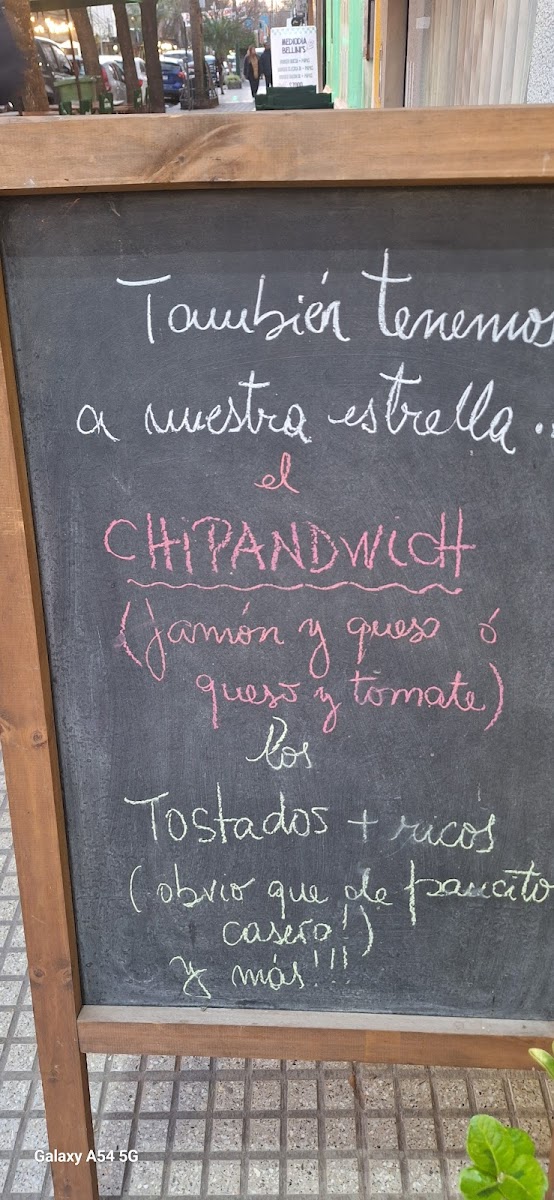 MEDIODIA
BELLINI'S
También tenemos
a nuestra estrella..
el
CHiPANDWiCH
(Jamón y queso ó
queso y tomate)
los
Tostados + ricos
(obvio que de pancito
casero!)
y más!!!
Galaxy A54 5G